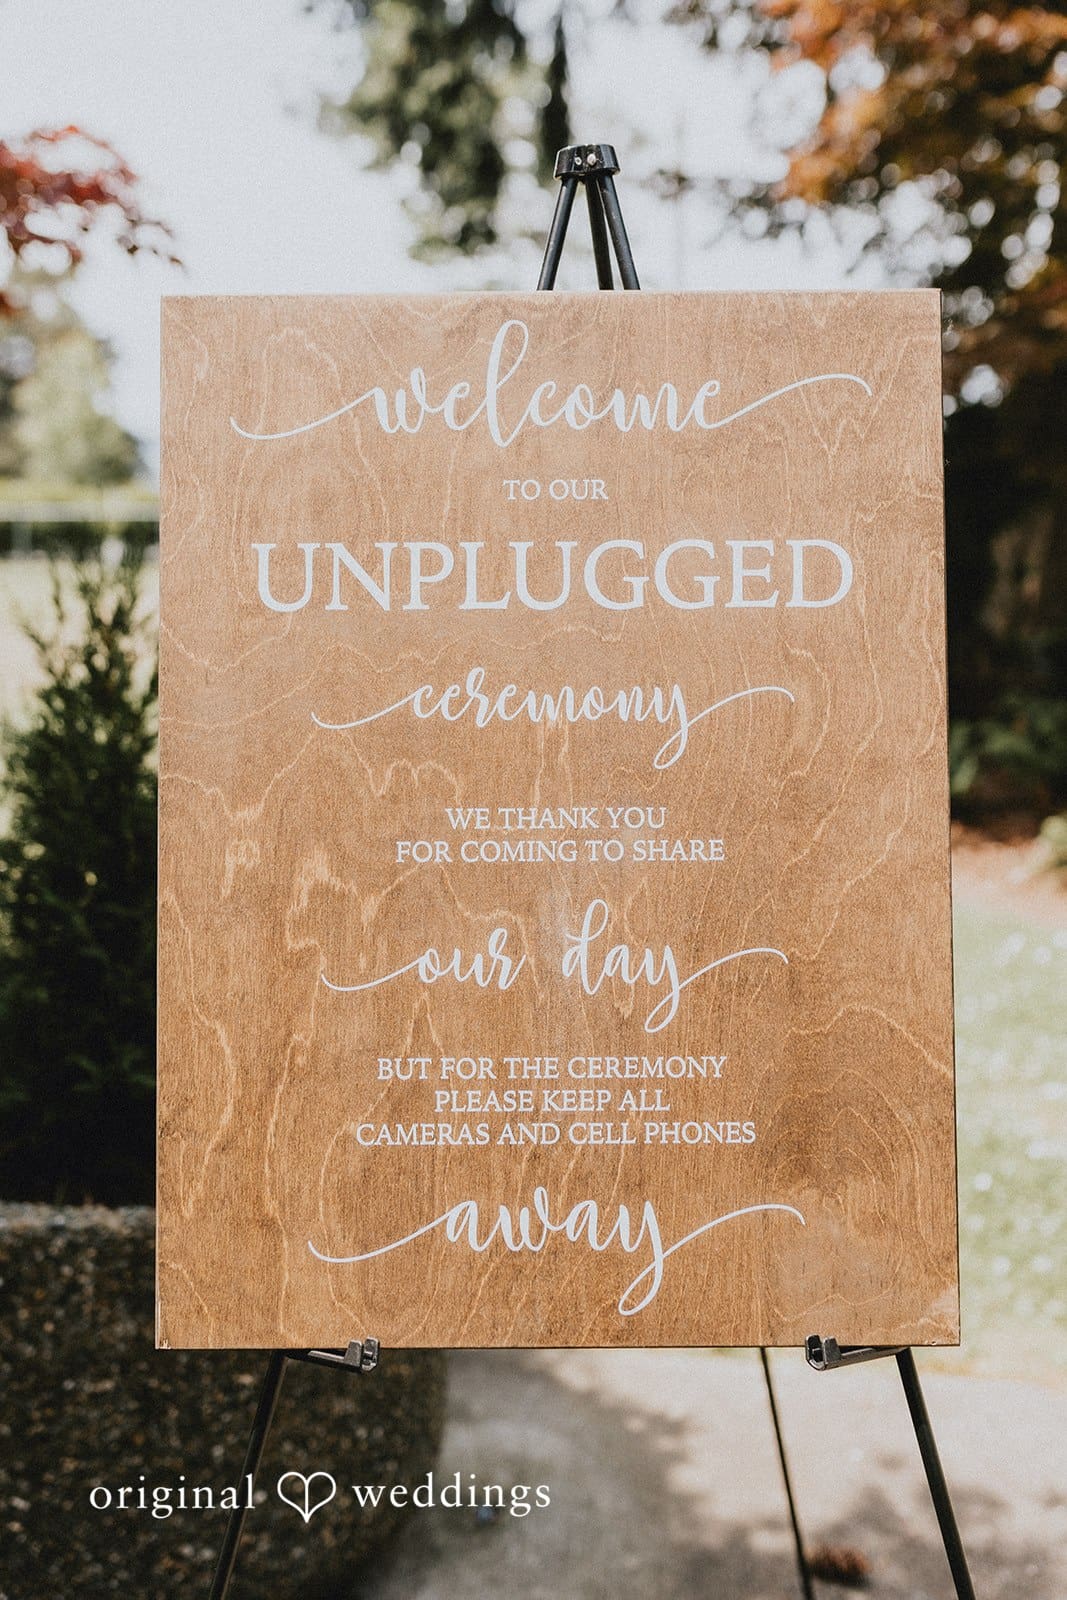 welcome
TO OUR
UNPLUGGED
ceremony
WE THANK YOU
FOR COMING TO SHARE
our day
BUT FOR THE CEREMONY
PLEASE KEEP ALL
CAMERAS AND CELL PHONES
away
original weddings